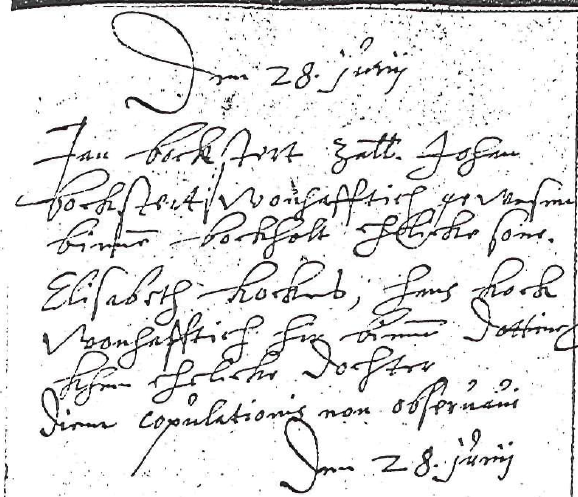 Den 28. Junij
Jan bockstert zall. Johan
bockstert wonhafftich gewesen
binnē bockholt ehelicke sone.
Elisabeth kockes, hans kock
wonhafftich hir binnē Dottinc
khem ehelicke Dochter
Diem copulationis non obseruaui
Den 28. Junij